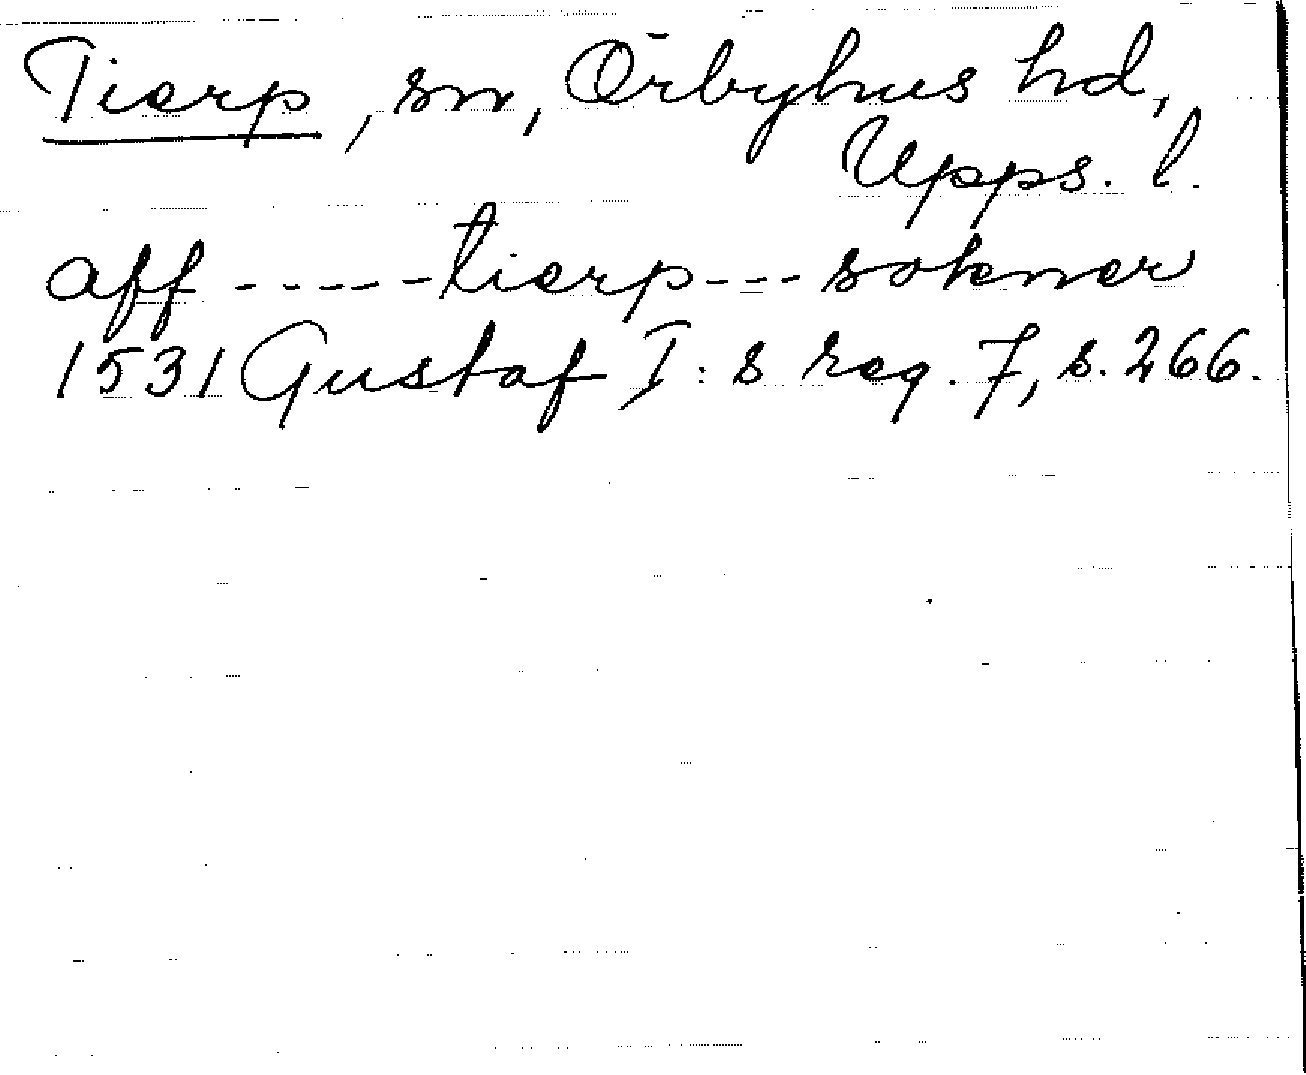 Tierp, sn, Örbyhus hd,
Upps. l.
aff ----- tierp --- sokner
1531 Gustaf I:s reg. 7, s. 266.